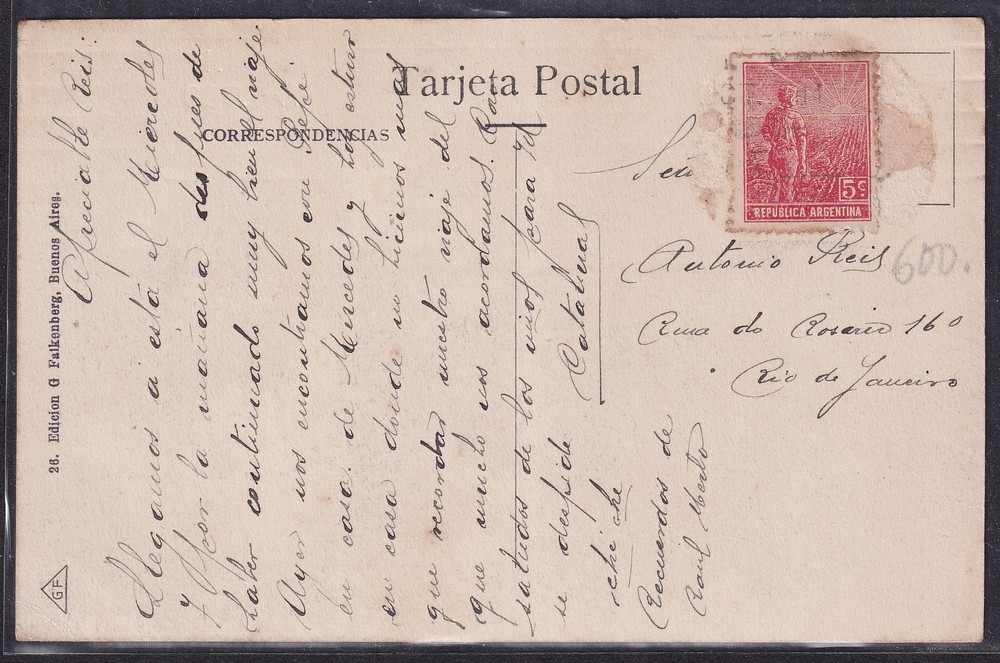 Tarjeta Postal
CORRESPONDENCIAS
26. Edicion G Falkenberg, Buenos Aires.
GF
5c
REPÚBLICA ARGENTINA
600.
Señ
Antonio Reis
Rua do Rosario 160
Rio de Janeiro
Apreciable Reis:
Llegamos a ésta el Miercoles
7 por la mañana despues de
haber continuado muy bien el viaje
Ayer nos encontramos con Pepe
en casa de Mercedes y hoy estuvo
en casa donde no hicimos mas
que recordar nuestro viaje del
que mucho nos acordamos. Con
saludos de los niños para
se despide
Catalina
Recuerdos de
Raul Alberto